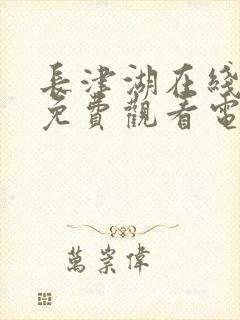 長津湖在綫
免費觀看電
萬崇偉